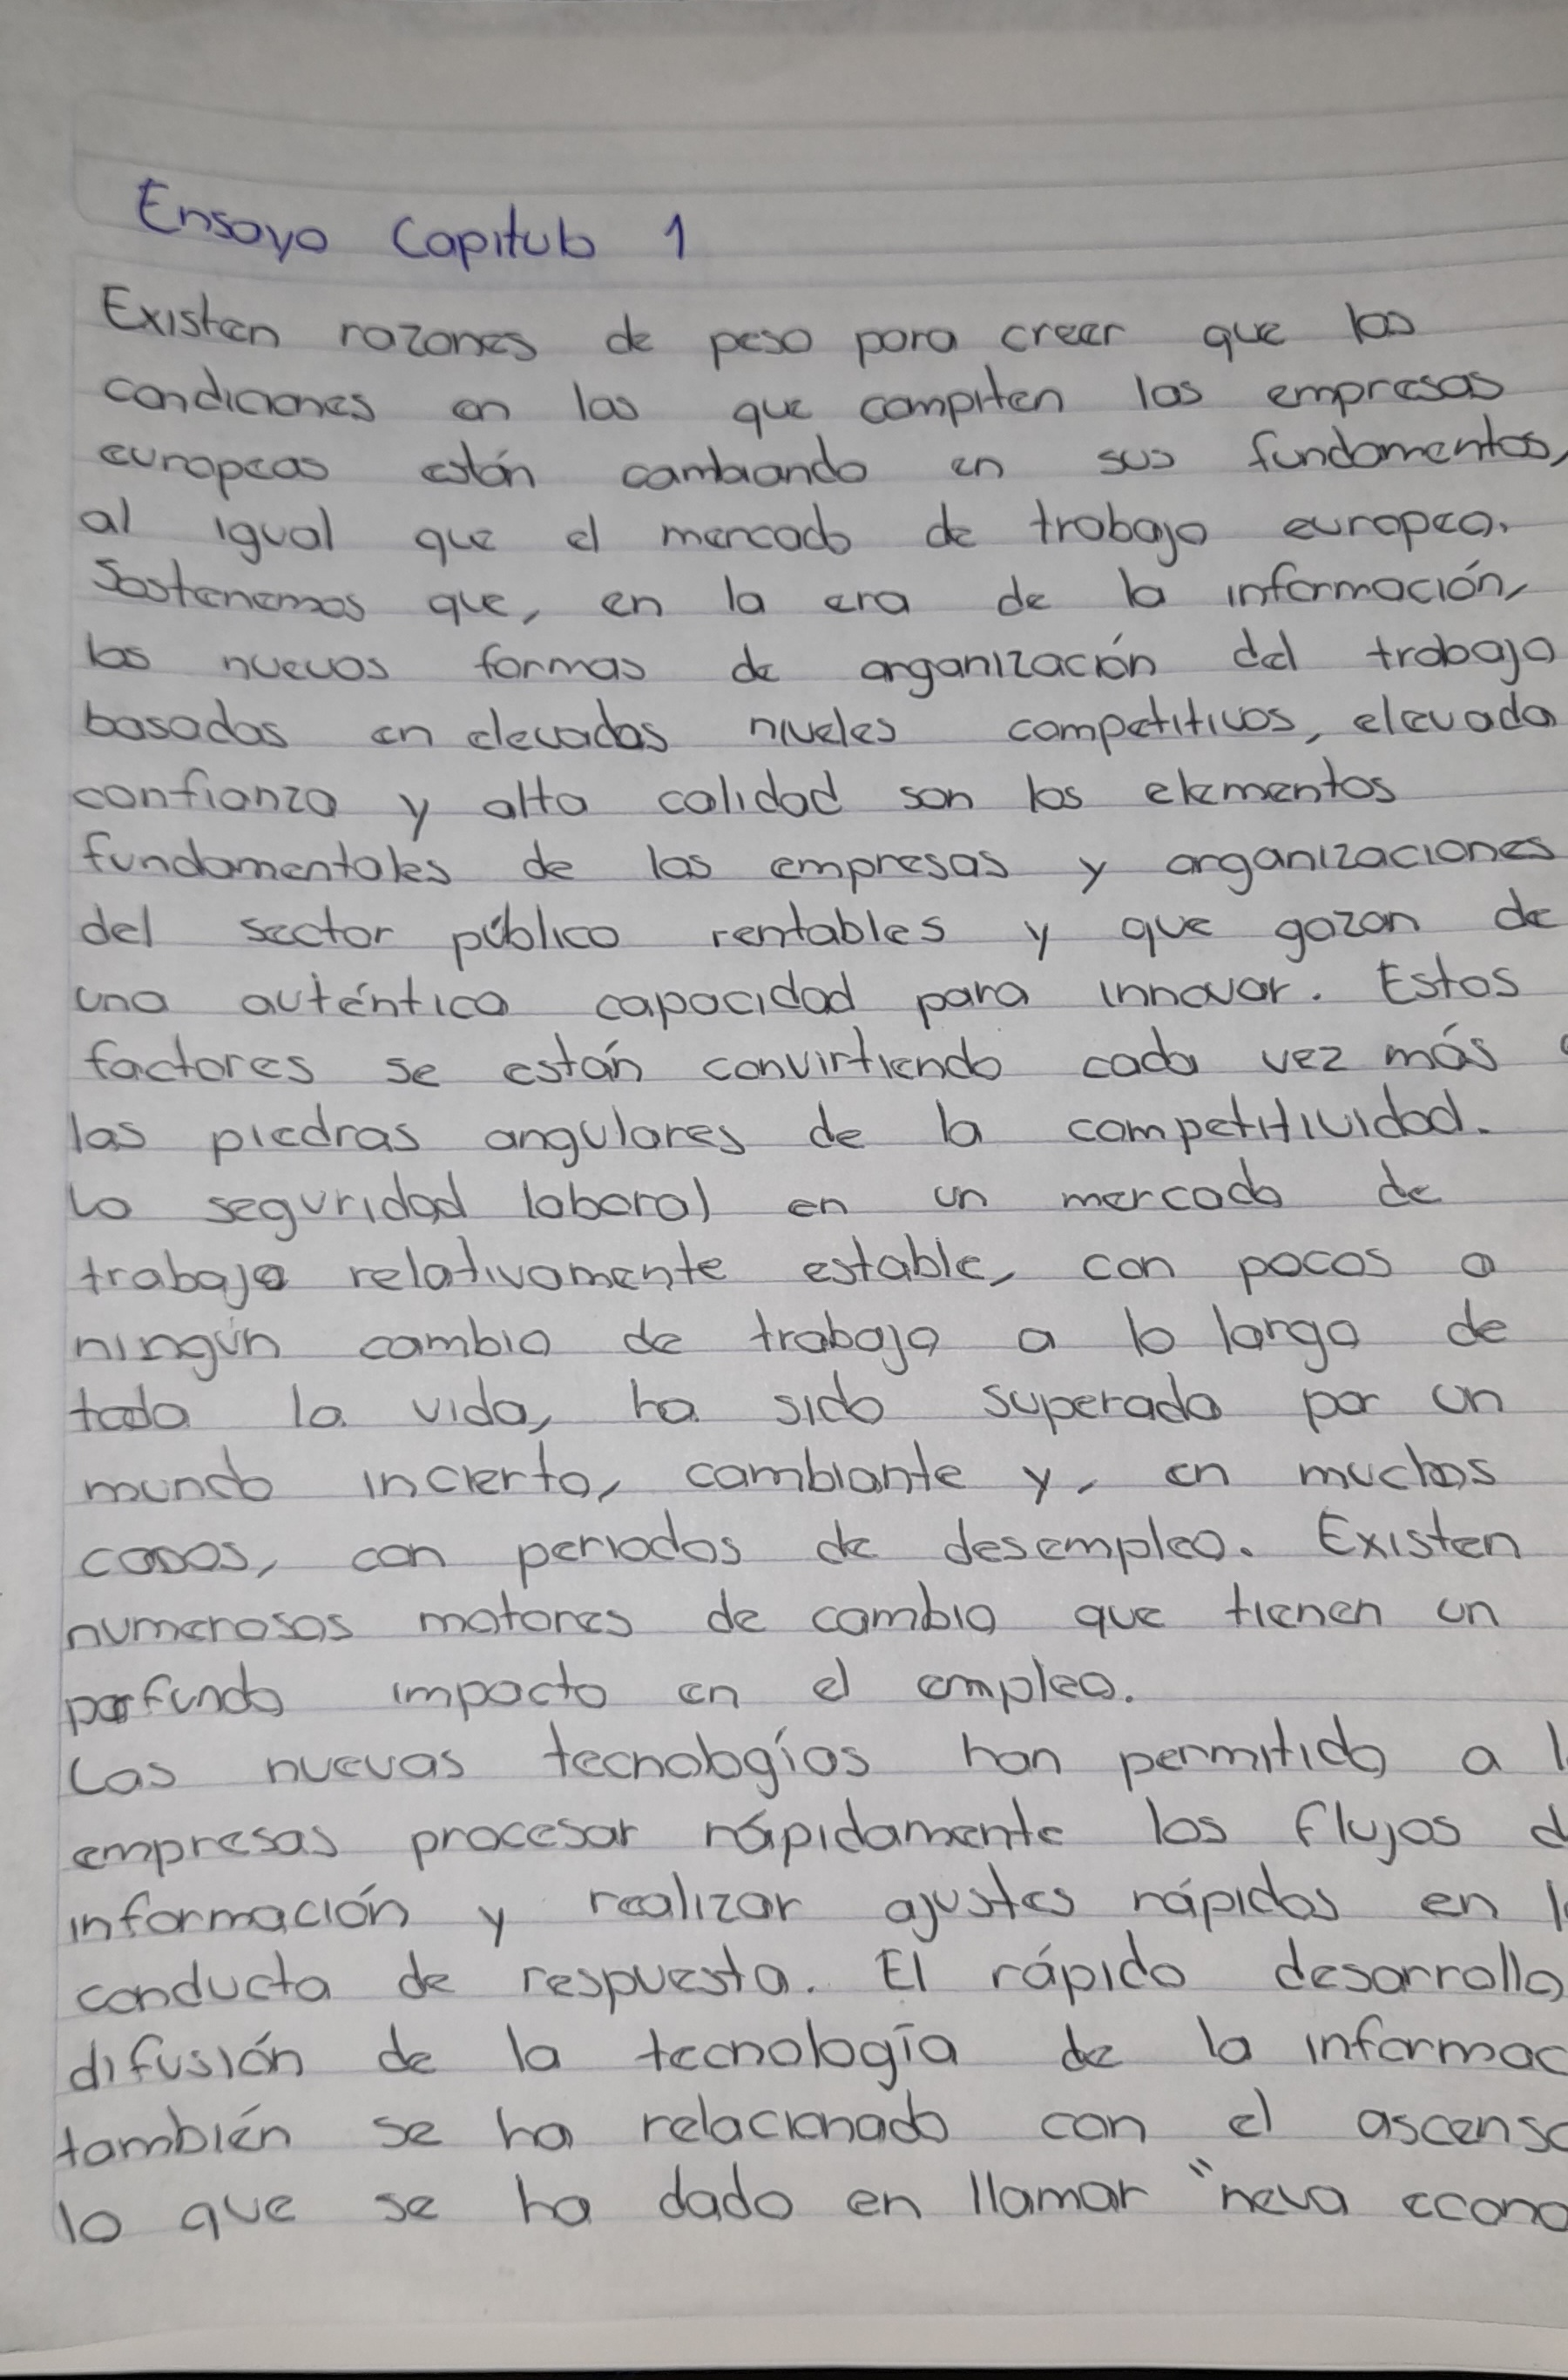 Ensayo Capitulo 1
Existen razones de peso para creer que las
condiciones en las que compiten las empresas
europeas están cambiando en sus fundamentos,
al igual que el mercado de trabajo europeo.
Sostenemos que, en la era de la información,
las nuevas formas de organización del trabajo
basadas en elevados niveles competitivos, elevada
confianza y alta calidad son los elementos
fundamentales de las empresas y organizaciones
del sector público rentables y que gozan de
una auténtica capacidad para innovar. Estos
factores se están convirtiendo cada vez más
las piedras angulares de la competitividad.
La seguridad laboral en un mercado de
trabajo relativamente estable, con pocos o
ningún cambio de trabajo a lo largo de
toda la vida, ha sido superada por un
mundo incierto, cambiante y, en muchos
casos, con periodos de desempleo. Existen
numerosos motores de cambio que tienen un
porfundo impacto en el empleo.
Las nuevas tecnologías han permitido a
empresas procesar rápidamente los flujos
información y realizar ajustes rápidos en
conducta de respuesta. El rápido desarrollo,
difusión de la tecnología de la informac
también se ha relacionado con el ascenso
lo que se ha dado en llamar "neva econo